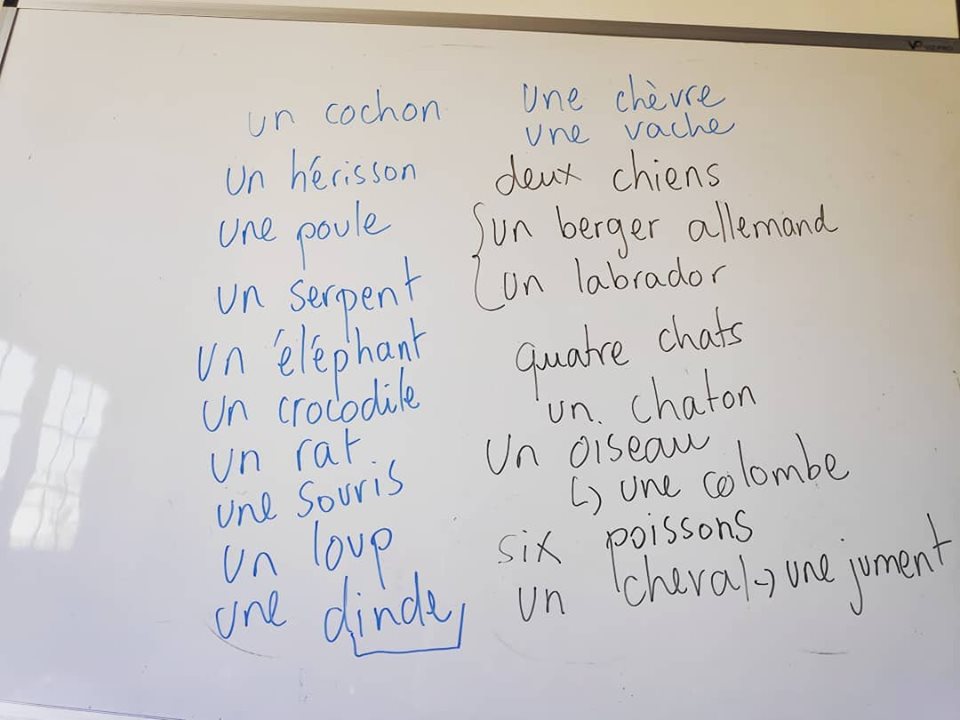 un cochon
un hérisson
une poule
un serpent
un éléphant
un crocodile
un rat
une souris
un loup
une dinde
une chèvre
une vache
deux chiens
un berger allemand
un labrador
quatre chats
un chaton
un oiseau
↳ une colombe
six poissons
un cheval → une jument